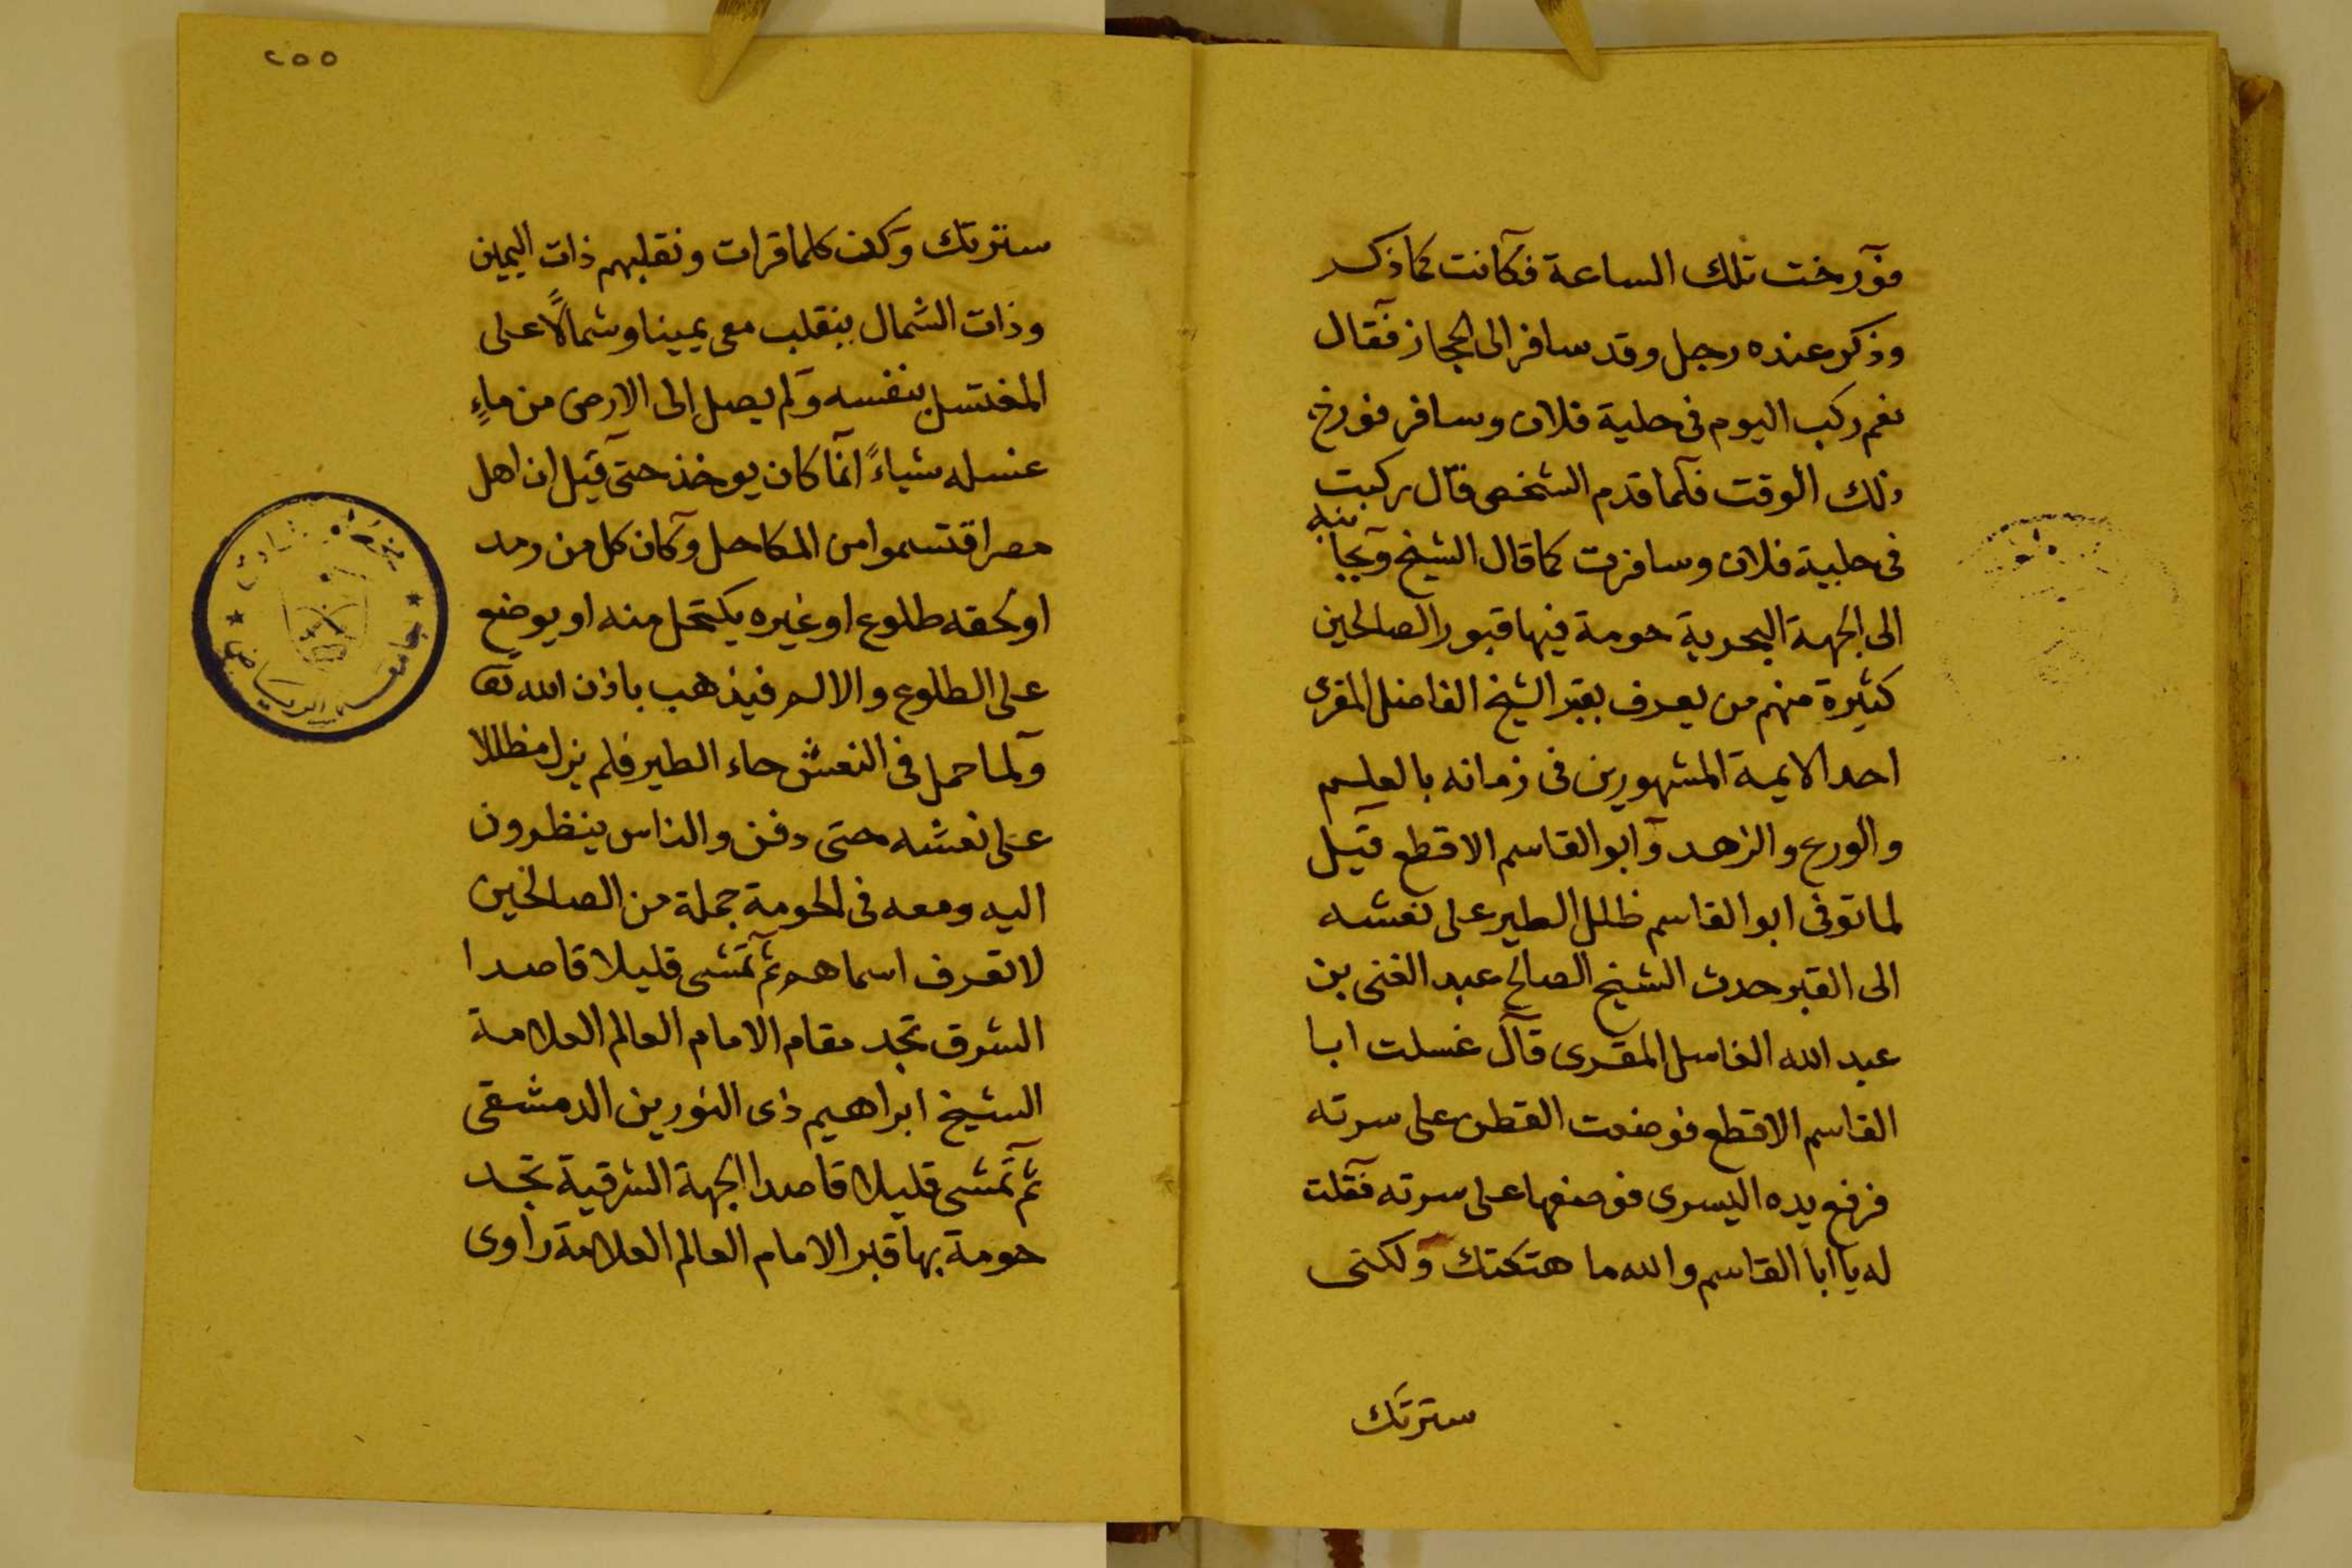 فورخت تلك الساعة فكانت كما ذكر
وذكر عنده رجل وقد سافر الى الحجاز فقال
نعم ركب اليوم فى حلبة فلان وسافر فورخ
ذلك الوقت فلما قدم الشخص قال ركبت
فى حلبية فلان وسافرت كما قال الشيخ وبجانبه
الى الجهة البحرية حومة فيها قبور الصالحين
كثيرة منهم من يعرف بقبر الشيخ الفاضل المقرى
احد الايمة المشهورين فى زمانه بالعلم
والورع والزهد وابو القاسم الاقطع قيل
لما توفى ابو القاسم ظلل الطير على نعشه
الى القبر حدث الشيخ الصالح عبد الغنى بن
عبد الله الفاضل المقرى قال غسلت ابا
القاسم الاقطع فوضعت القطن على سرته
فرفع يده اليسرى فوضعها على سرته فقلت
له يا ابا القاسم والله ما هتكتك ولكنى
سترتك
٢٥٥
سترتك وكنت كلما قرات ونقلبهم ذات اليمين
وذات الشمال ينقلب معى يمينا وشمالاً على
المغتسل بنفسه ولم يصل الى الارض من ماءِ
غسله شياءً انما كان يوخذ حتى قيل ان اهل
مصر اقتسموا من المكاحل وكان كل من رمد
او لحقه طلوع او غيره يكتحل منه او يوضع
على الطلوع والالم فيذهب باذن الله تعا
ولما حمل فى النعش جاء الطير فلم يزل مظللا
على نعشه حتى دفن والناس ينظرون
اليه ومعه فى الحومة جملة من الصالحين
لا تعرف اسماهم ثم تمشى قليلا قاصدا
الشرق تجد مقام الامام العالم العلامة
الشيخ ابراهيم ذى النورين الدمشقى
ثم تمشى قليلا قاصدا الجهة الشرقية تجد
حومة بها قبر الامام العالم العلامة راوى
جامعة الرياض